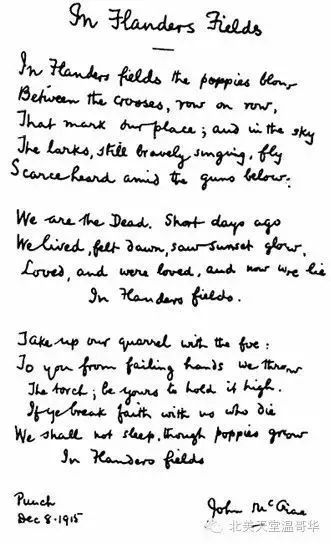 In Flanders Fields
In Flanders fields the poppies blow
Between the crosses, row on row,
That mark our place; and in the sky
The larks, still bravely singing, fly
Scarce heard amid the guns below.
We are the Dead. Short days ago
We lived, felt dawn, saw sunset glow,
Loved, and were loved, and now we lie
In Flanders fields.
Take up our quarrel with the foe:
To you from failing hands we throw
The torch; be yours to hold it high.
If ye break faith with us who die
We shall not sleep, though poppies grow
In Flanders fields
Punch
Dec 8·1915
John McCrae
北美天堂温哥华